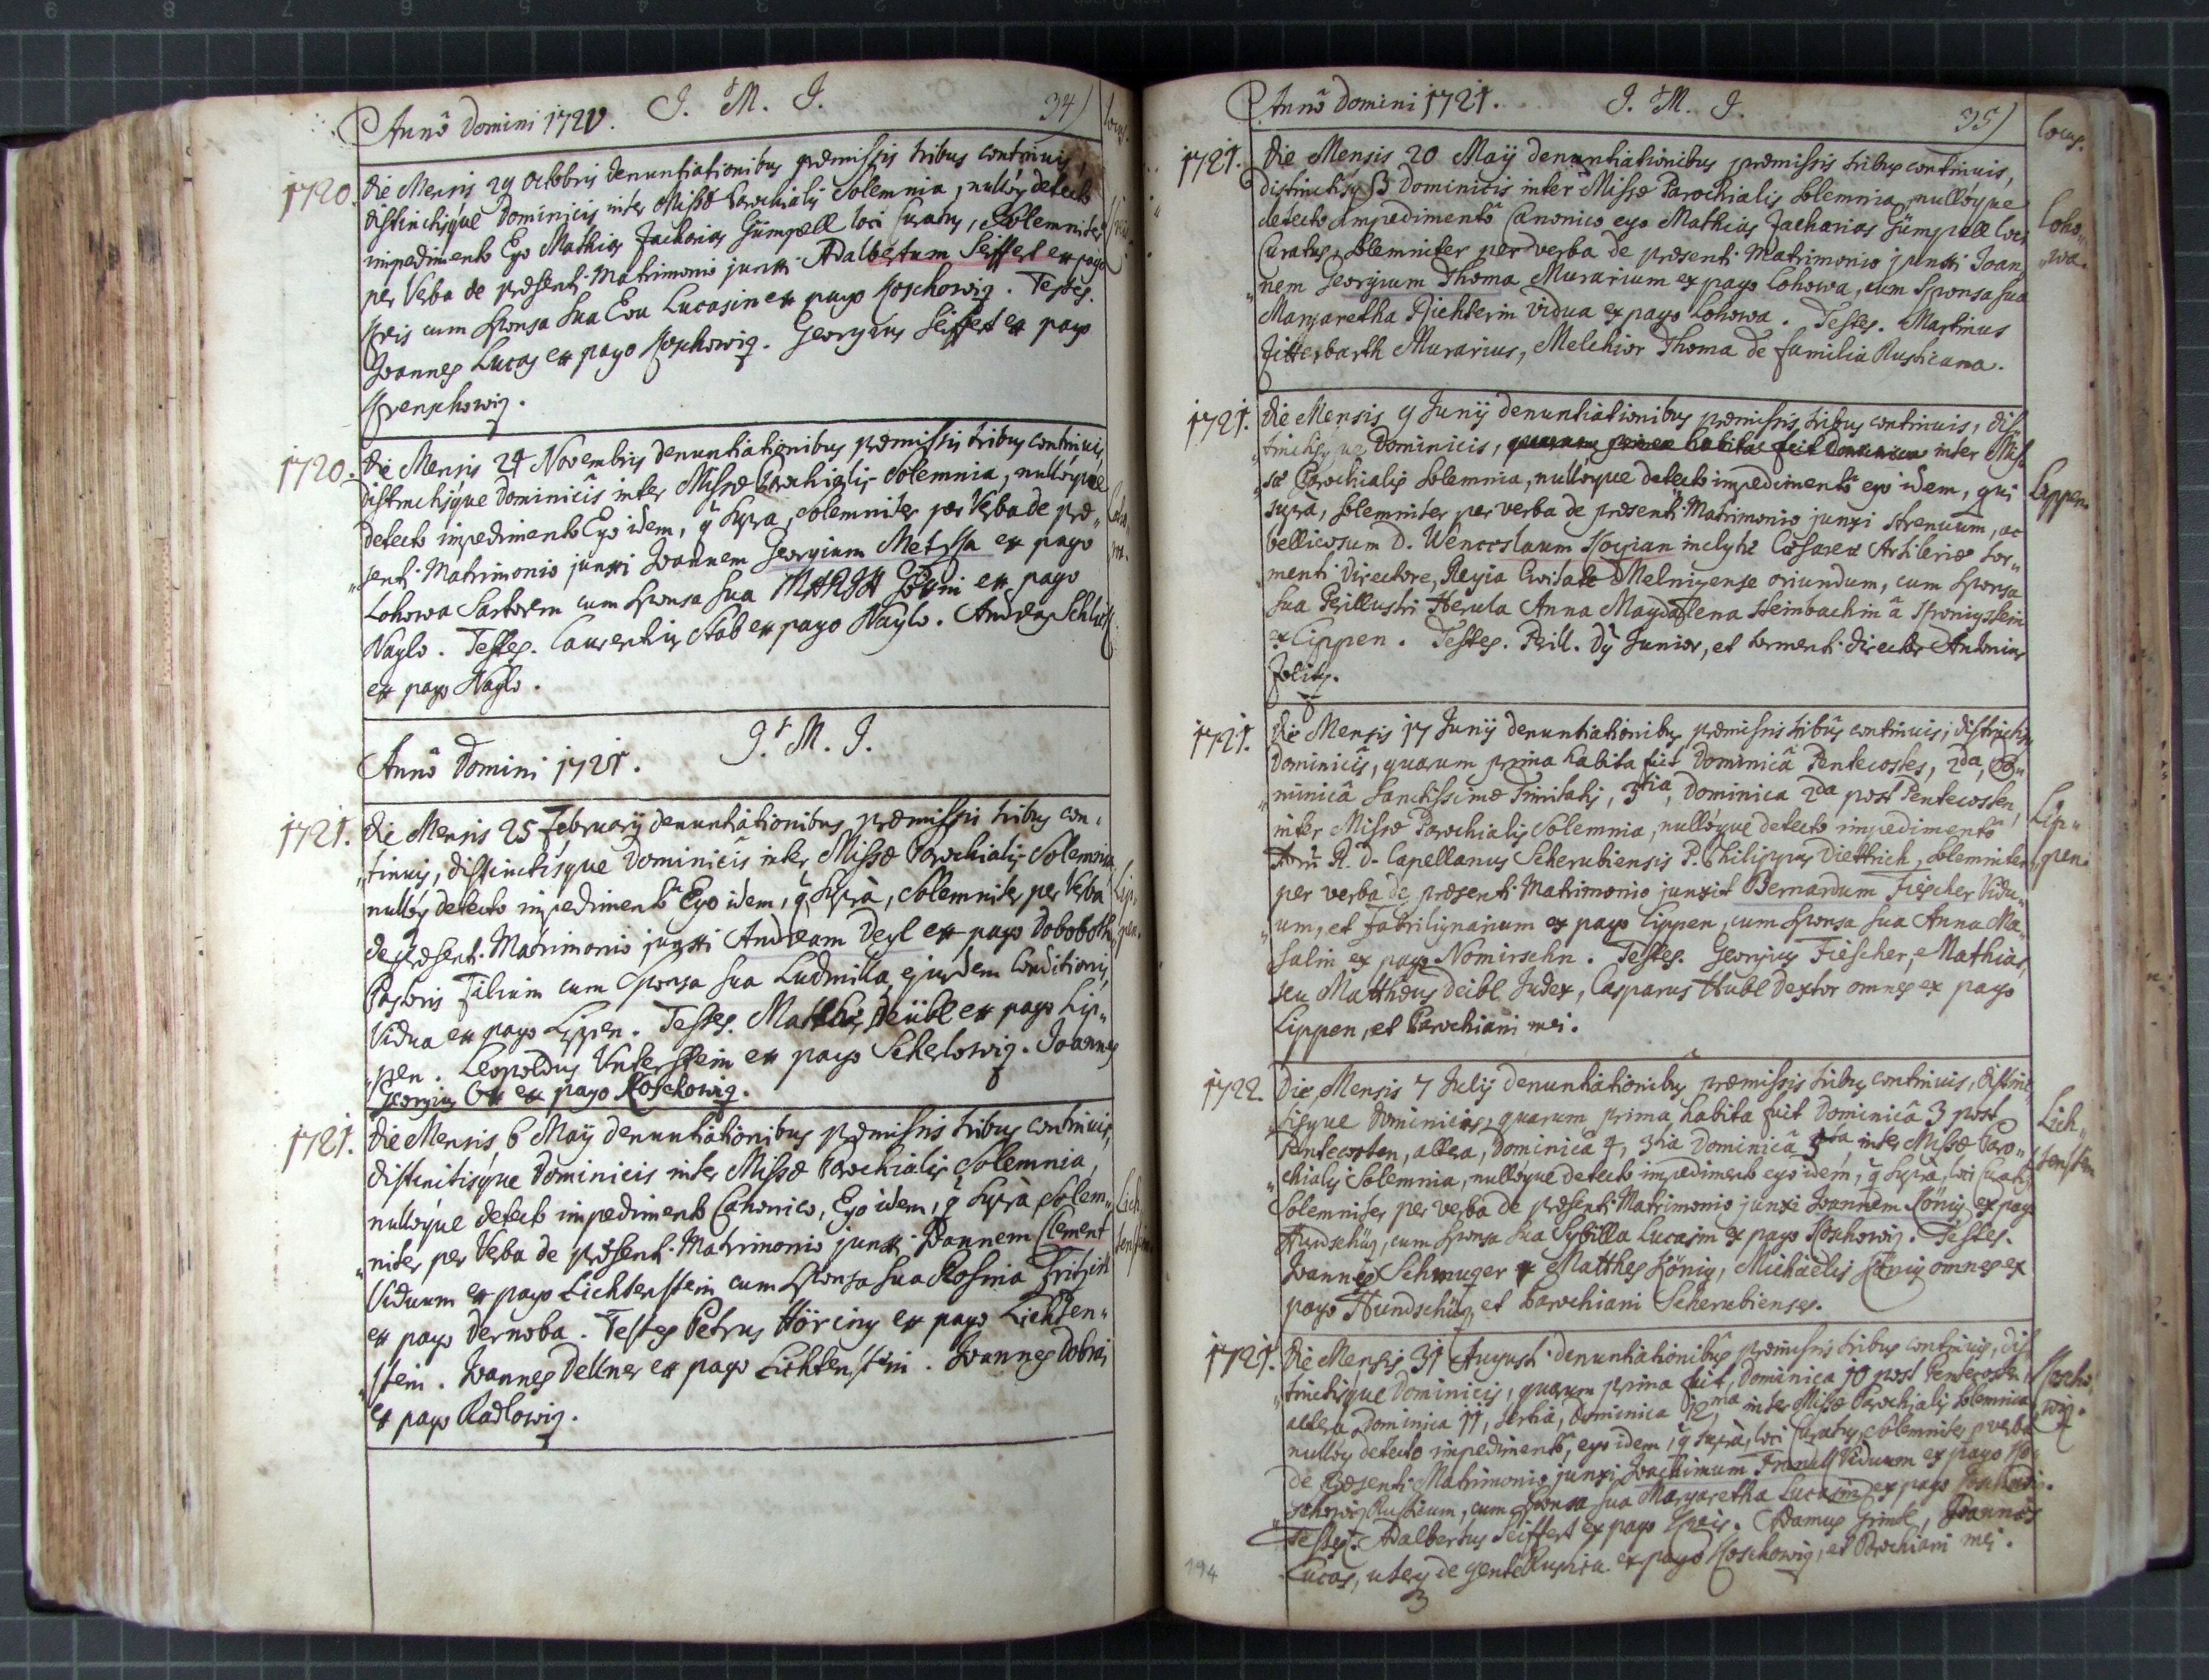 Anno Domini 1720. J. M. J. 34)
1720. Die Mensis 29 Octobris denuntiationibus præmissis tribus continuis,
distinctisque Dominicis inter Missæ Parochialis Solemnia, nullóq detecto
impedimento Ego Mathias Zacharias Gümpell loci Curatus, Solemniter
per Verba de præsenti Matrimonio junxi Adalbertum Seiffert ex pago
cum Sponsa sua Eva Lucasin ex pago Koschowiz. Testes.
Joannes Lucas ex pago Koschowiz. Georgius Seiffert ex pago
1720. Die Mensis 24 Novembris denuntiationibus præmissis tribus continuis,
distinctisque Dominicis inter Missæ Parochialis Solemnia, nullóque
detecto impedimento Ego idem, q supra, Solemniter per Verba de præ„
„senti Matrimonio junxi Joannem Georgium ex pago
Lohowa Sartorem cum Sponsa sua ex pago
Naglo. Testes. Laurentius Stab ex pago Naglo. Andreas
ex pago Naglo.
Anno Domini 1721. J. M. J.
1721. Die Mensis 25 February denuntiationibus præmissis tribus con„
„tinuis, distinctisque Dominicis inter Missæ Parochialis Solemnia
nullóq detecto impedimento Ego idem, q supra, Solemniter per Verba
de præsenti Matrimonio junxi Andream Deyl ex pago Doboboth
Pastoris Filium cum Sponsa sua Ludmilla, ejusdem Conditionis,
Vidua ex pago Lippen. Testes. Matthias Deübl ex pago Lip„
„pen. Leopoldus Unterstein ex pago Scherlowiz. Joannes
Georgius ex pago Koschowiz.
Lip„
pen.
1721. Die Mensis 6 Maÿ denuntiationibus præmissis tribus continuis,
distinctisque Dominicis inter Missæ Parochialis Solemnia,
nullóque detecto impedimento Canonico, Ego idem, q supra Solem„
„niter per Verba de præsenti Matrimonio junxi Joannem Clement
Viduum ex pago Lichtenstein cum Sponsa sua Rosina
ex pago Dernoba. Testes Petrus ex pago Lichten„
„stein. Joannes Dellner ex pago Lichtenstein. Joannes
ex pago Radlowiz.
Anno Domini 1721. J. M. J. 35)
locus.
1721. Die Mensis 20 Maÿ denuntiationibus præmissis tribus continuis,
distinctisq 3 Dominicis inter Missæ Parochialis Solemnia, nullóque
detecto Impedimento Canonico ego Mathias Zacharias Gümpell loci
Curatus, Solemniter per verba de præsenti Matrimonio junxi Joan„
„nem Georgium Thoma Murarium ex pago Lohowa, cum Sponsa sua
Margaretha Richterin vidua ex pago Lohowa. Testes. Martinus
Zitterbarth Murarius, Melchior Thoma de familia Rusticana.
Loho„
„wa.
1721. Die Mensis 9 Junÿ denuntiationibus præmissis tribus continuis, dis„
„tinctisque Dominicis, quarum prima habita fuit Dominica inter Mis„
„sæ Parochialis Solemnia, nullóque detecto impedimento ego idem, qui
supra, Solemniter per verba de præsenti Matrimonio junxi strenuum, ac
bellicosum D. Wenceslaum inclytæ Cæsareæ Artileriæ tor„
„menti Directore, Regia Civitate Melnizense oriundum, cum Sponsa
sua Perillustri Herula Anna Magdalena Steinbachin â
ex Lippen. Testes. Perill. Junior, et tormenti director Antonius
Lippen.
1721. Die Mensis 17 Junÿ denuntiationibus præmissis tribus continuis, distinctisq
Dominicis, quarum prima habita fuit Dominica Pentecostes, 2da, Do„
„minica Sanctissimæ Trinitatis, 3tia, Dominica 2da post Pentecosten,
inter Missæ Parochialis Solemnia, nullóque detecto impedimento
R. D. Capellanus Scherubiensis P. Philippus Diettrich, Solemniter
per verba de præsenti Matrimonio junxit Bernardum Fiescher Vidu„
„um, et Fabrilignarium ex pago Lippen, cum Sponsa sua Anna Ma„
salin ex pago Nomirschn. Testes. Georgius Fiescher, Mathias,
seu Matthæus Deibl Judex, Casparus Hubl Textor omnes ex pago
Lippen, et Parochiani mei.
Lip„
„pen.
1722. Die Mensis 7 Julÿ denuntiationibus præmissis tribus continuis, distinc„
tisque Dominicis, quarum prima habita fuit Dominica 3 post
Pentecosten, altera, Dominica 4, 3tia Dominica 5ta inter Missæ Paro„
„chialis Solemnia, nullóque detecto impedimento ego idem, q supra, loci Curatus
Solemniter per verba de præsenti Matrimonio junxi Joannem König ex pago
Hundschüz, cum Sponsa sua Sybilla Lucasin ex pago Koschowiz. Testes.
Joannes Schmuger Matthes König, Michaelis König omnes ex
pago Hundschüz, et Parochiani Scherubienses.
Lich„
tenstein
1721. Die Mensis 31 Augusti denuntiationibus præmissis tribus continuis, dis„
„tinctisque Dominicis, quarum prima fuit, Dominica 10 post Pentecosten
altera, Dominica 11, tertia, Dominica 12ma inter Missæ Parochialis Solemnia,
nullóq detecto impedimento, ego idem, q supra, loci Curatus, Solemniter p verba
de præsenti Matrimonio junxi Joachimum Viduum ex pago Ko„
„schowiz Rusticum, cum Sponsa sua Margaretha Lucasin ex pago Koschowiz.
Testes. Adalbertus Seiffert ex pago. Adamus, Joannes
Lucas, uterq de gente Rustica ex pago Koschowiz, et Parochiani mei.
Koscho„
„wiz.
194